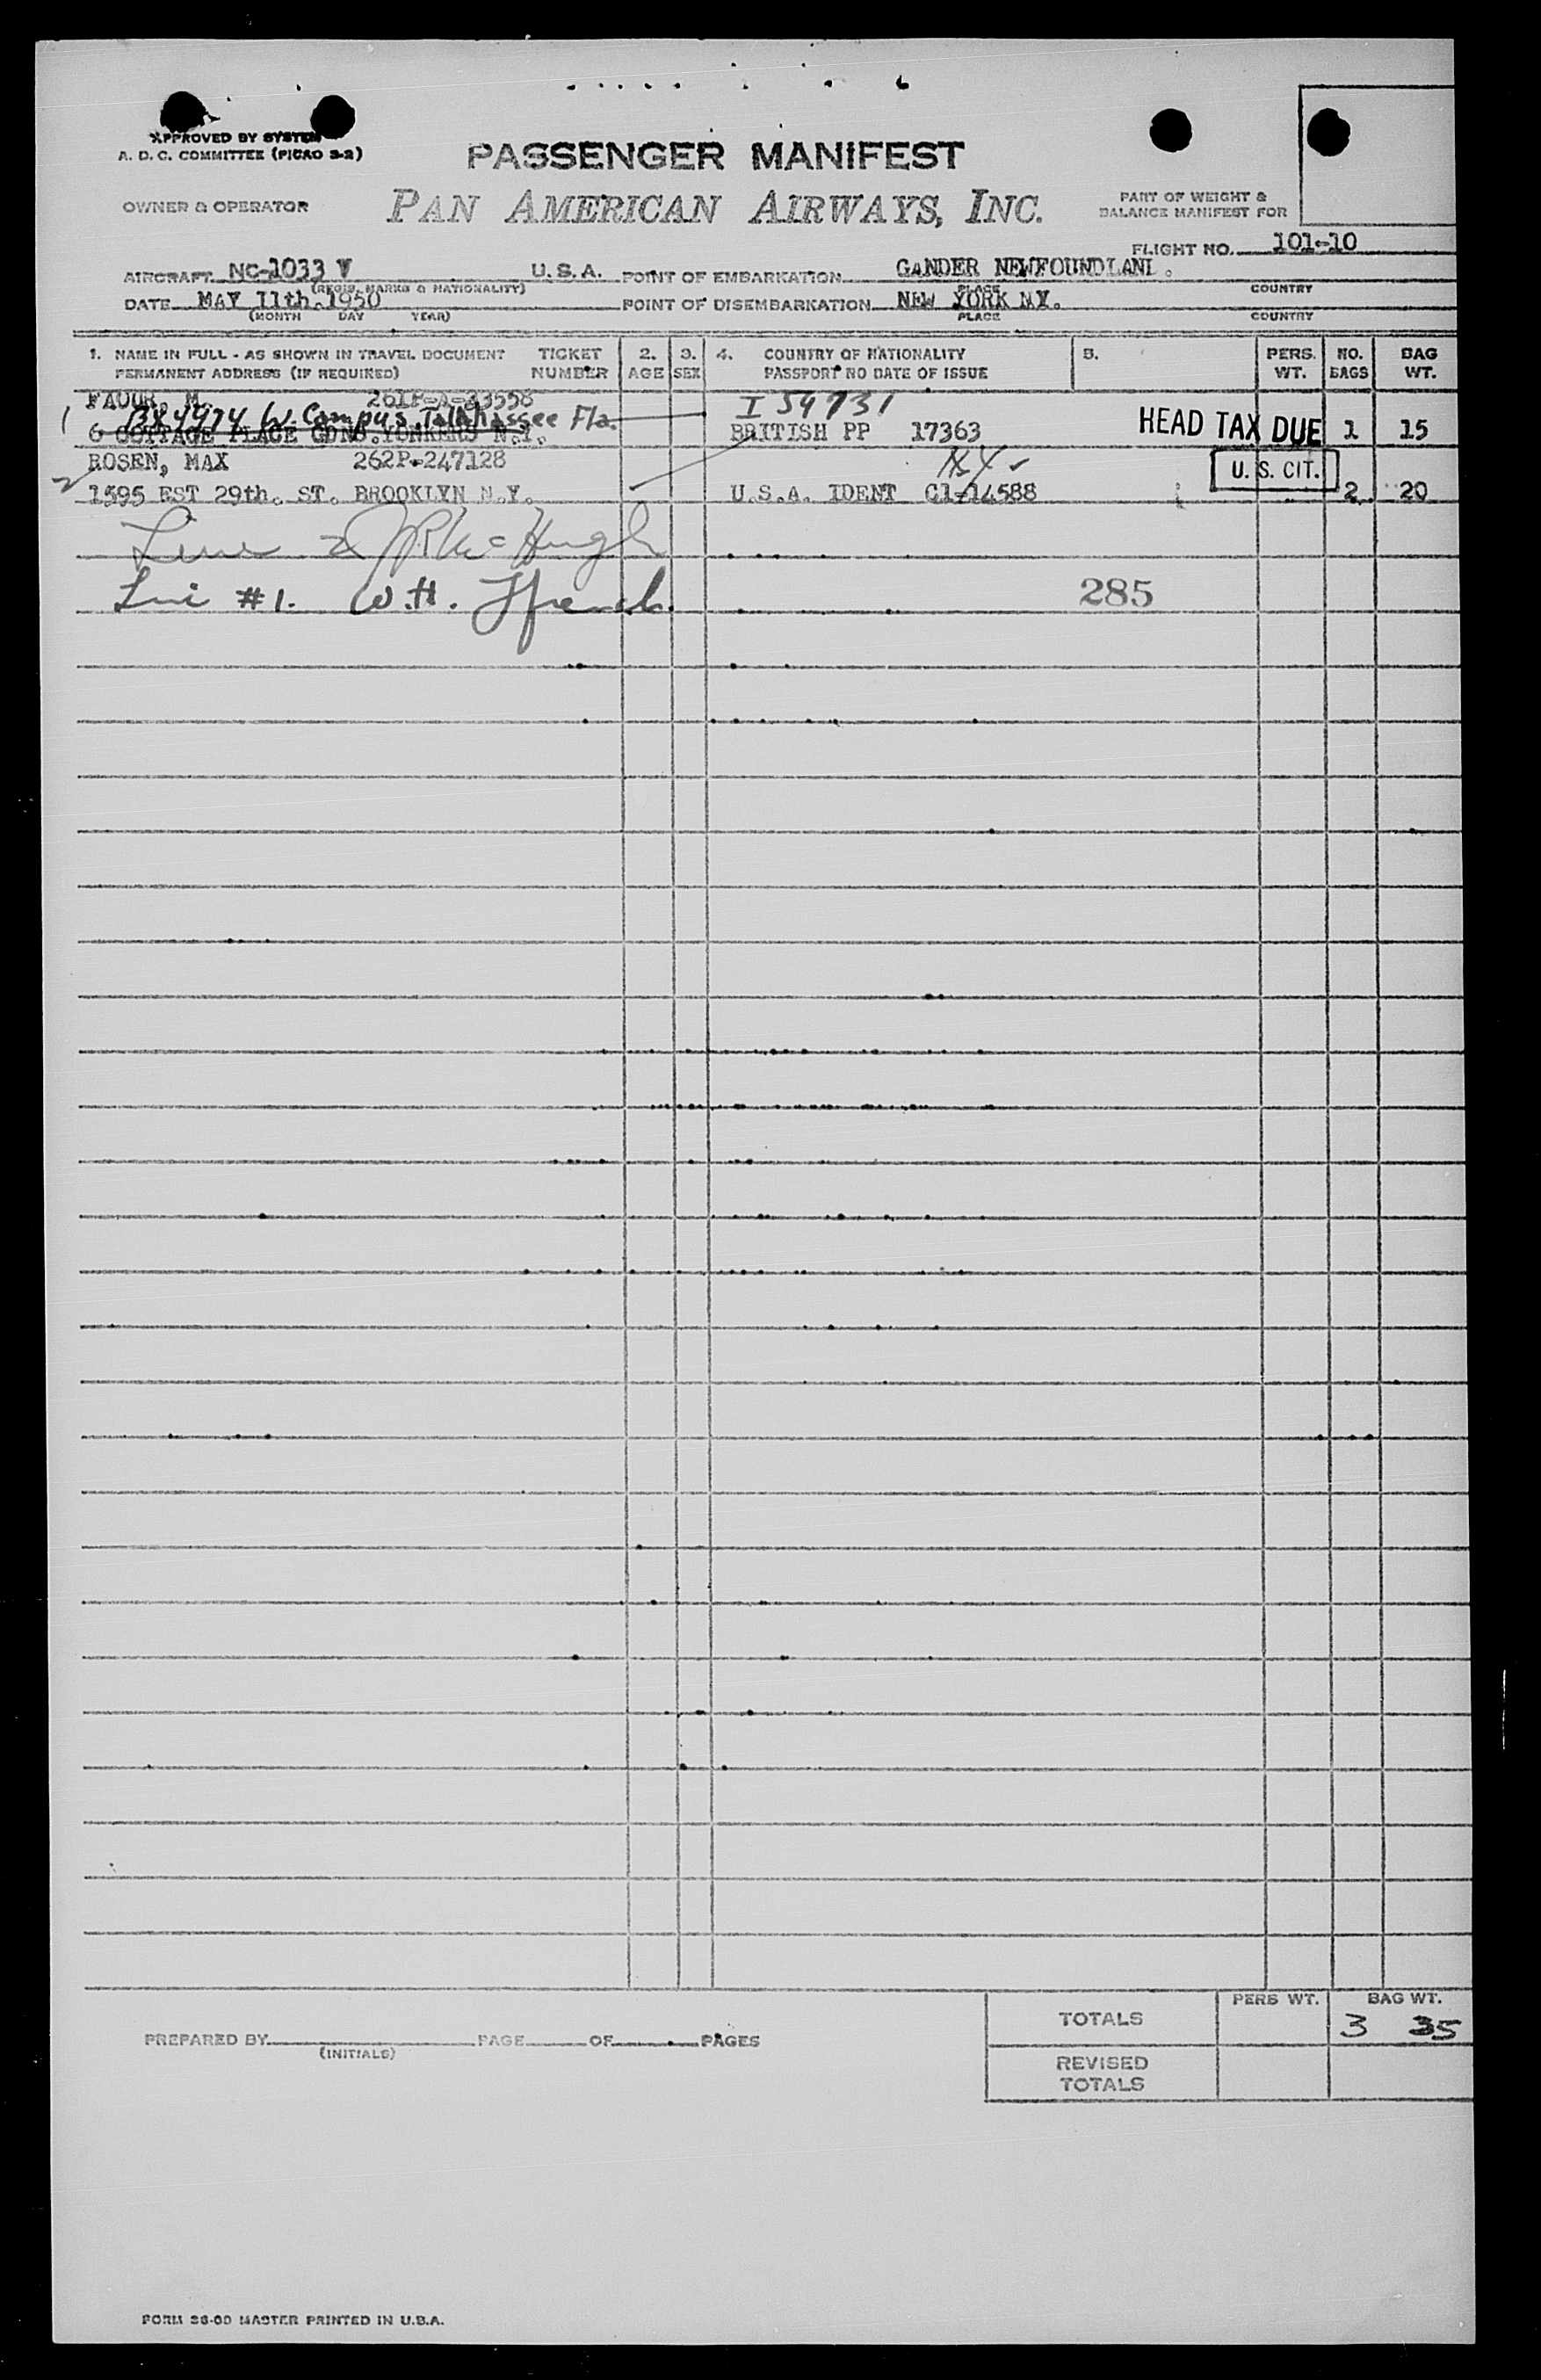 APPROVED BY SYSTEM
A. D. C. COMMITTEE (PICAO 3-2)
PASSENGER MANIFEST
OWNER & OPERATOR
PAN AMERICAN AIRWAYS, INC.
PART OF WEIGHT &
BALANCE MANIFEST FOR
FLIGHT NO. 101-10
AIRCRAFT NC-1033 V U.S.A. POINT OF EMBARKATION GANDER NEWFOUNDLAND.
(REGIS. MARKS & NATIONALITY) PLACE COUNTRY
DATE MAY 11th.1950 POINT OF DISEMBARKATION NEW YORK N.Y.
(MONTH DAY YEAR) PLACE COUNTRY
1. NAME IN FULL - AS SHOWN IN TRAVEL DOCUMENT TICKET 2. 3. 4. COUNTRY OF NATIONALITY 5. PERS. NO. BAG
PERMANENT ADDRESS (IF REQUIRED) NUMBER AGE SEX PASSPORT NO DATE OF ISSUE WT. BAGS WT.
FAOUR, M. 261P-A-33558 I 54731
1 BX 4974 W. Campus, Tallahassee Fla. HEAD TAX DUE
6 COTTAGE PLACE GDNS.YONKERS N.Y. BRITISH PP 17363 1 15
2 ROSEN, MAX 262P-247128 U. S. CIT.
1595 EST 29th. ST. BROOKLYN N.Y. U.S.A. IDENT C1-14588 2 20
Line 2 JR McHugh
Line #1. W.H. Ffrench 285
TOTALS PERS WT. BAG WT.
3 35
PREPARED BY PAGE OF PAGES
(INITIALS)
REVISED
TOTALS
FORM 36-0D MASTER PRINTED IN U.S.A.